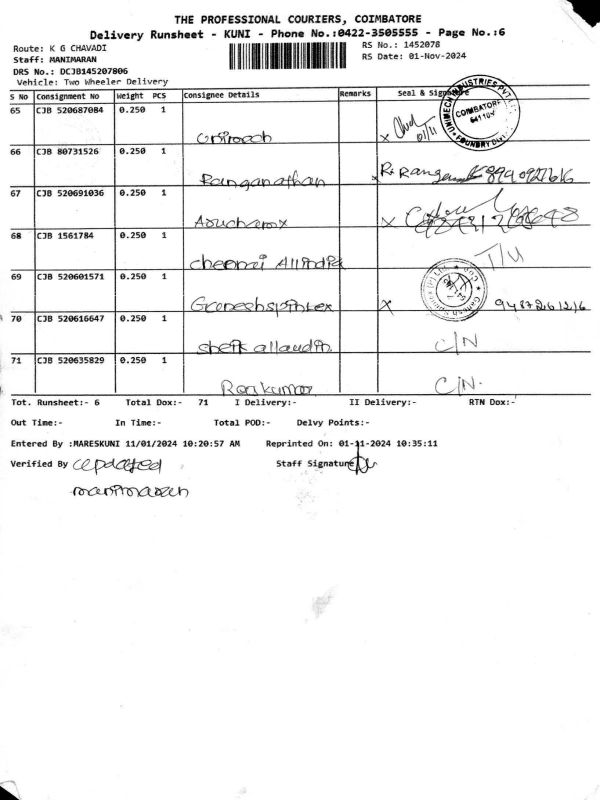 THE PROFESSIONAL COURIERS, COIMBATORE
Delivery Runsheet - KUNI - Phone No.:0422-3505555 - Page No.:6
Route: K G CHAVADI
RS No.: 1452078
Staff: MANIMARAN
RS Date: 01-Nov-2024
DRS No.: DCJB145207806
Vehicle: Two Wheeler Delivery
S No Consignment No Weight PCS Consignee Details Remarks Seal & Signature
65 CJB 520687084 0.250 1 Unimech
01/11
UNIMECH INDUSTRIES PVT
COIMBATORE
FOUNDRY DIVI
66 CJB 80731526 0.250 1 Ranganathan
67 CJB 520691036 0.250 1
68 CJB 1561784 0.250 1 Chennai All India T/U
69 CJB 520601571 0.250 1 Ganeshspintex x
70 CJB 520616647 0.250 1 Sheik allaudin C/N
71 CJB 520635829 0.250 1 Rajkumar C/N.
Tot. Runsheet:- 6 Total Dox:- 71 I Delivery:- II Delivery:- RTN Dox:-
Out Time:- In Time:- Total POD:- Delvy Points:-
Entered By :MARESKUNI 11/01/2024 10:20:57 AM Reprinted On: 01-11-2024 10:35:11
Verified By updated Staff Signature
manimaran